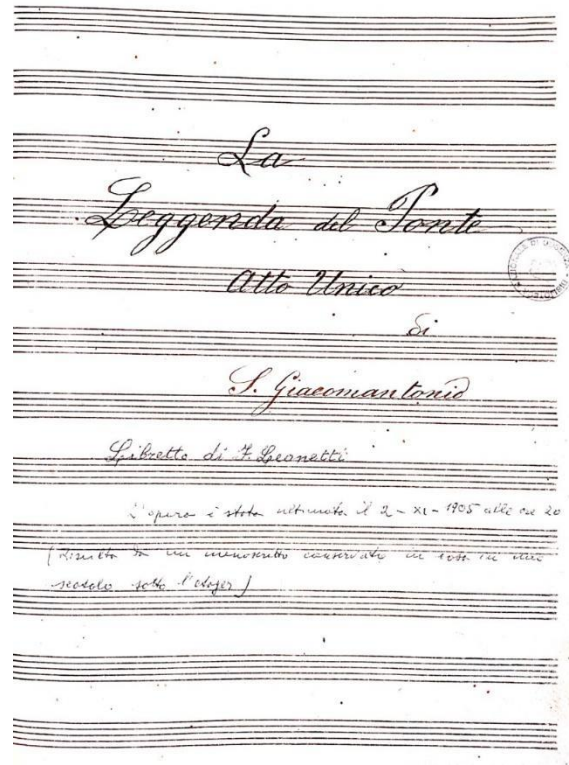 La
Leggenda del Ponte
Atto Unico
di
S. Giacomantonio
Libretto di F. Leonetti
L'opera è stata ultimata il 2 - XI - 1905 alle ore 20
(risulta da un manoscritto conservato in casa in uno
scatolo sotto l'etager)